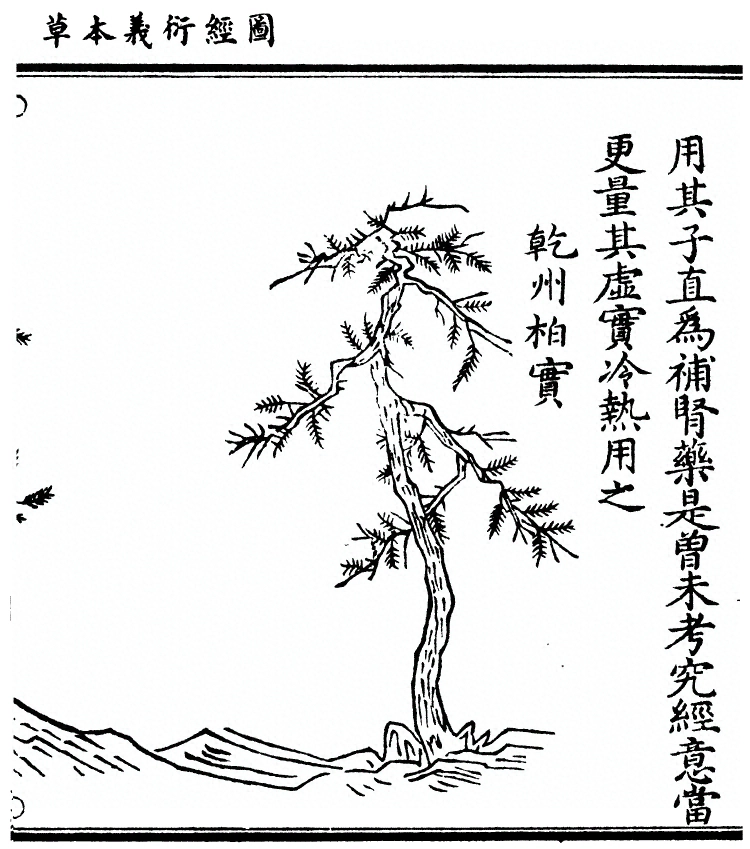 圖經衍義本草
用其子直爲補腎藥是曾未考究經意當
更量其虛實冷熱用之
乾州柏實